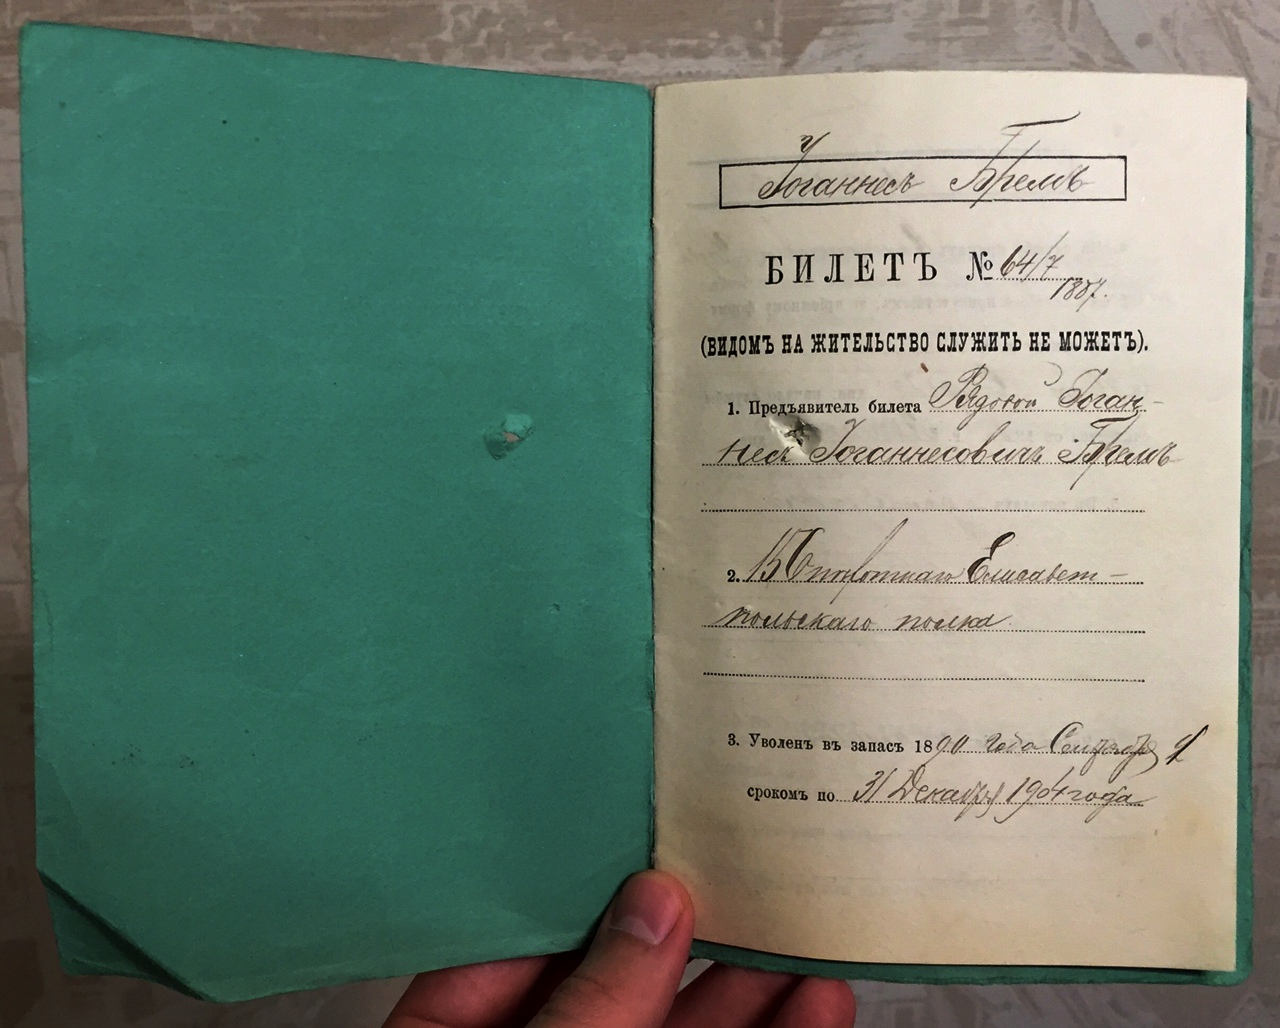 Іоганнесъ Бремъ
БИЛЕТЪ № 64/7
1887.
(ВИДОМЪ НА ЖИТЕЛЬСТВО СЛУЖИТЬ НЕ МОЖЕТЪ).
1. Предъявитель билета Рядовой Іоган-
несъ Іоганнесовичъ Бремъ
2. 156 пехотнаго Елисавет-
польскаго полка
3. Уволенъ въ запасъ 1890 года Сентября
срокомъ по 31 Декабря 1904 года